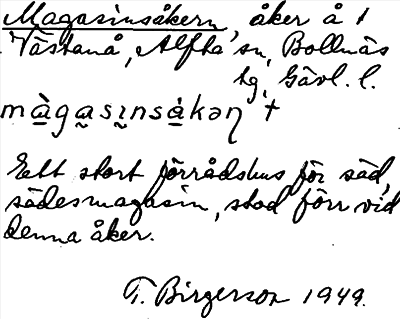 Magasinsåkern, åker å 1
Västanå, Alfta sn, Bollnäs
tg, Gävl. l.
màgasinsákəņ †
Ett stort förrådshus för säd,
sädesmagasin, stod förr vid
denna åker.
T. Birgerson 1949.